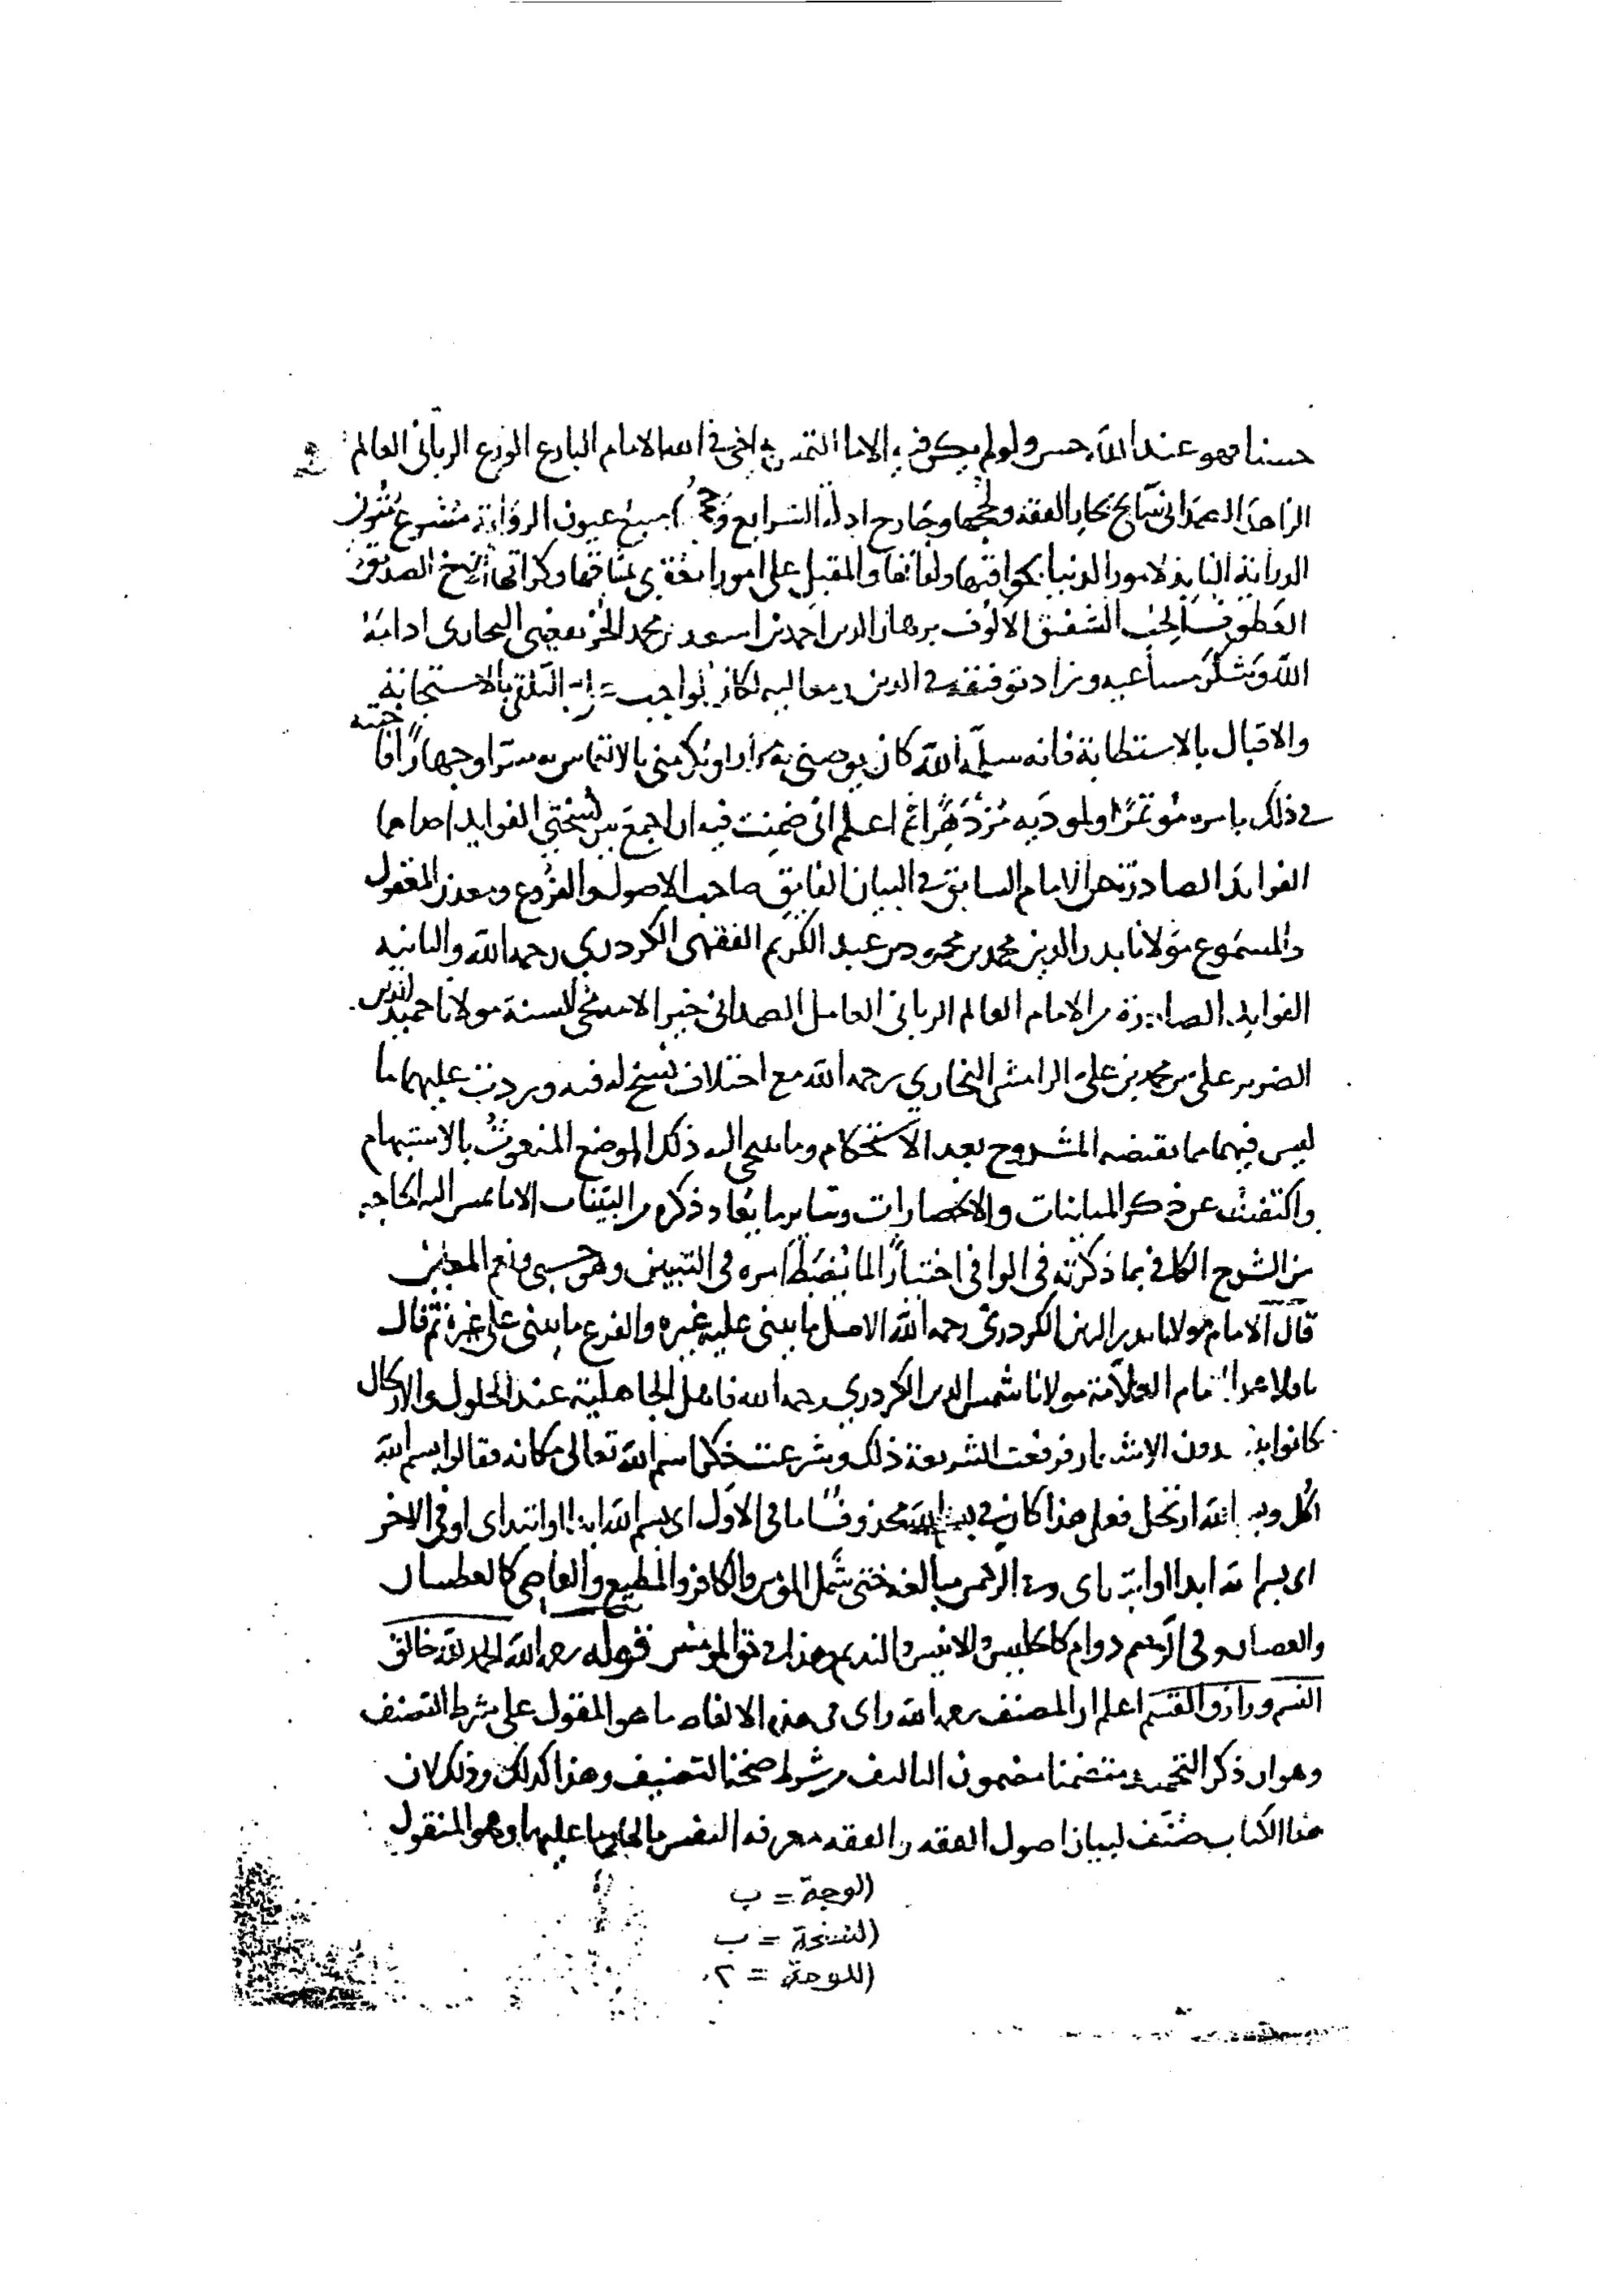 حسنا فهو عند الله حسن ولو لم يكن فيه الا ما التمس به اخي في الله الامام البارع الورع الرباني العالم
الزاهد الصمداني سابح بحار الفقه ولججها وجارح ادلة الشرايع منبع عيون الرواية مشرع متون
الدراية النابذ لامور الدنيا والمقبل على امور العقبى الشيخ الصدوق
العطوف المحب الشفيق الالوف برهان الدين احمد بن اسعد بن محمد البخاري ادامه
الله وشكر مساعيه وزاد توفيقه في الدين ومعاليه لكان الواجب التلقي بالاستجابة
والاقبال بالاستطابة فانه سلمه الله كان يوصيني به مرارا ويكرمني بالالتماس منه سرا وجهارا
في ذلك بامره مؤتمرا ثم اعلم اني ضمنت فيه ان اجمع بين نسختي الفوايد احداهما
الفوايد الصادرة عن الامام السابق في البيان الفايق صاحب الاصول والفروع ومعدن المعقول
والمسموع مولانا بدر الدين محمد بن محمود بن عبد الكريم الفقهي الكردري رحمه الله والثانيه
الفوايد الصادرة من الامام العالم الرباني العامل الصمداني خير الامة محي السنة مولانا حميد الدين
الضرير علي بن محمد بن علي الرامشي البخاري رحمه الله مع اختلاف نسخ له فيه وزدت عليهما ما
ليس فيهما مما يقتضيه المشروح بعد الاستحكام وما ينتحي اليه ذلك الموضع المنعوت بالاستبهام
واكتفيت عن ذكر المباينات والاختصارات وساير ما يعاد ذكره من البينات الا ما تمس اليه الحاجه
من الشرح الكافي بما ذكرته في الوافي اختيارا لما ينضبط امره في التبيين وهو حسبي ونعم المعين
قال الامام مولانا بدر الدين الكردري رحمه الله الاصل ما يبنى عليه غيره والفرع ما يبنى على غيره ثم قال
ناقلا عن الامام العلامة مولانا شمس الدين الكردري رحمه الله فاهل الجاهلية عند الحلول والارتحال
كانوا فرفعت الشريعة ذلك وشرعت ذكر اسم الله تعالى مكانه فقالوا بسم الله
احل وبسم الله ارتحل فعلى هذا كان في بسم الله محذوفا اما في الاول اي بسم الله ابدا او ابتداي او في الاخر
اي بسم الله ابدا او ابتداي وفي الرحمن مبالغة حتى شمل المؤمن والكافر والمطيع والعاصي كالعطشان
والغضبان وفي الرحيم دوام كالجليس والانيس والنديم وهذا في حق المؤمنين قوله رحمه الله الحمد لله خالق
النسم ورازق القسم اعلم ان المصنف رحمه الله راى في هذه الالفاظ ما هو المقول على شرط التصنيف
وهو ان ذكر التحميد متضمنا مضمون التاليف من شرط صحة التصنيف وهذا كذلك وذلك لان
هذا الكتاب صنف لبيان اصول الفقه والفقه معرفة النفس مالها وما عليها وهو المنقول
الوجه = ب
النسخة = ب
اللوحة = ٢